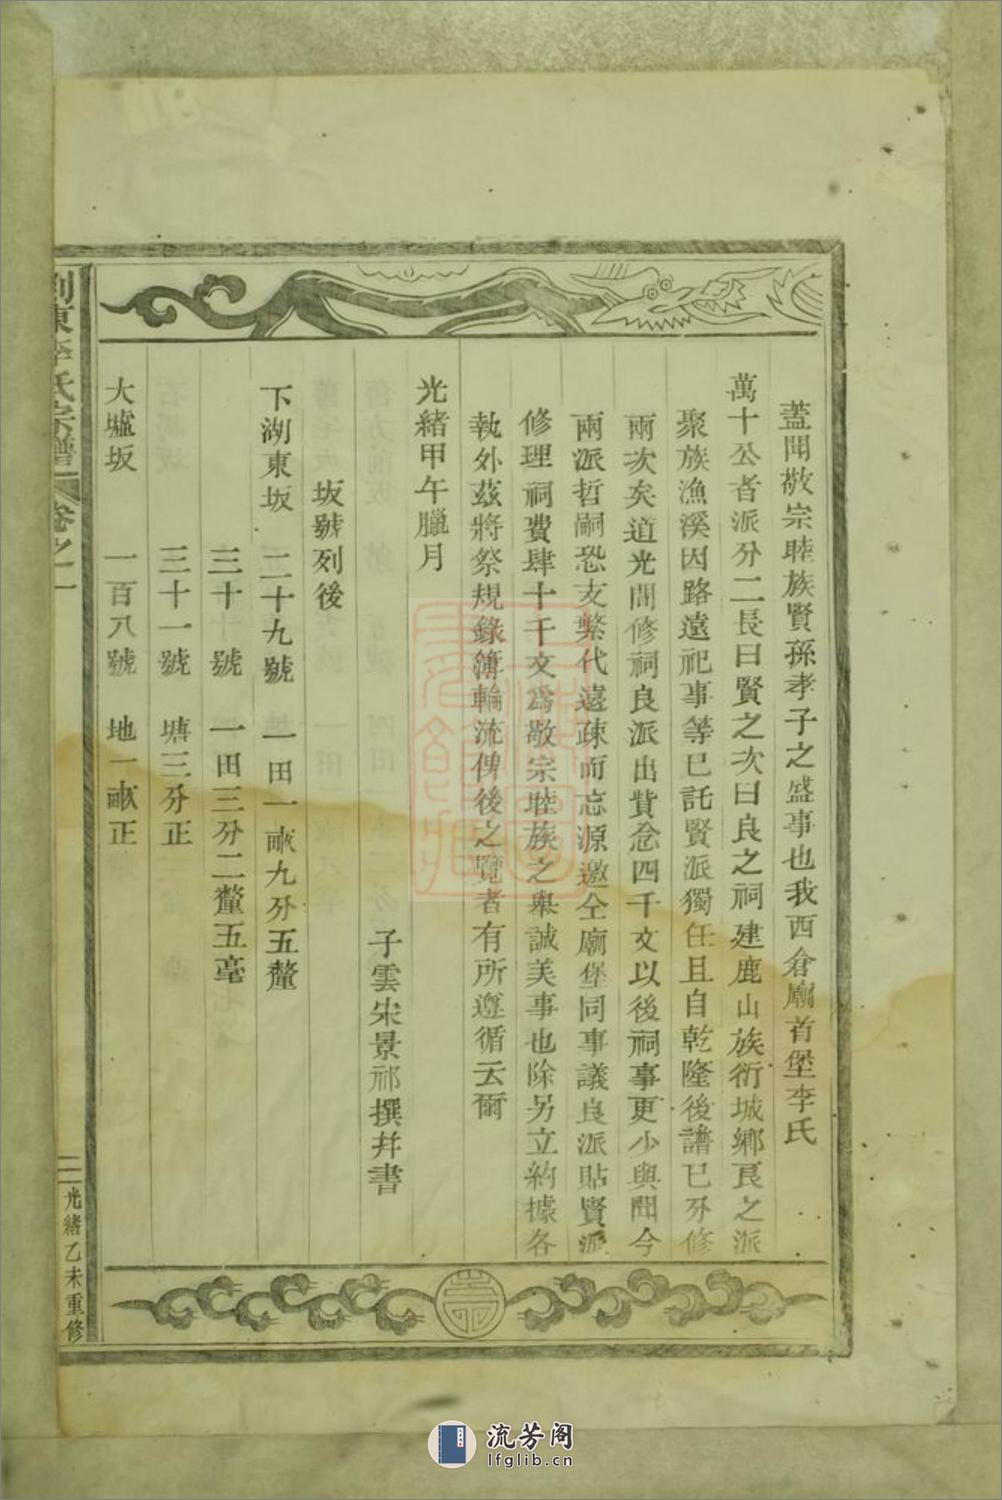 蓋聞敬宗睦族賢孫孝子之盛事也我西倉廟首堡李氏
萬十公者派分二長曰賢之次曰良之祠建鹿山族衍城鄉良之派
聚族漁溪因路遠祀事等已託賢派獨任且自乾隆後譜已分修
兩次矣道光間修祠良派出貲念四千文以後祠事更少與聞今
兩派哲嗣恐支繁代遠疎而忘源邀仝廟堡同事議良派貼賢派
修理祠費肆十千文爲敬宗睦族之舉誠美事也除另立約據各
執外茲將祭規錄簿輪流俾後之覽者有所遵循云爾
光緒甲午臘月
子雲宋景祁撰幷書
坂號列後
下湖東坂 二十九號 一田一畝九分五釐
三十號 一田三分二釐五毫
三十一號 塘三分正
大墟坂 一百八號 地一畝正
剡東李氏宗譜 卷之一
二 光緒乙未重修
流芳阁
lfglib.cn